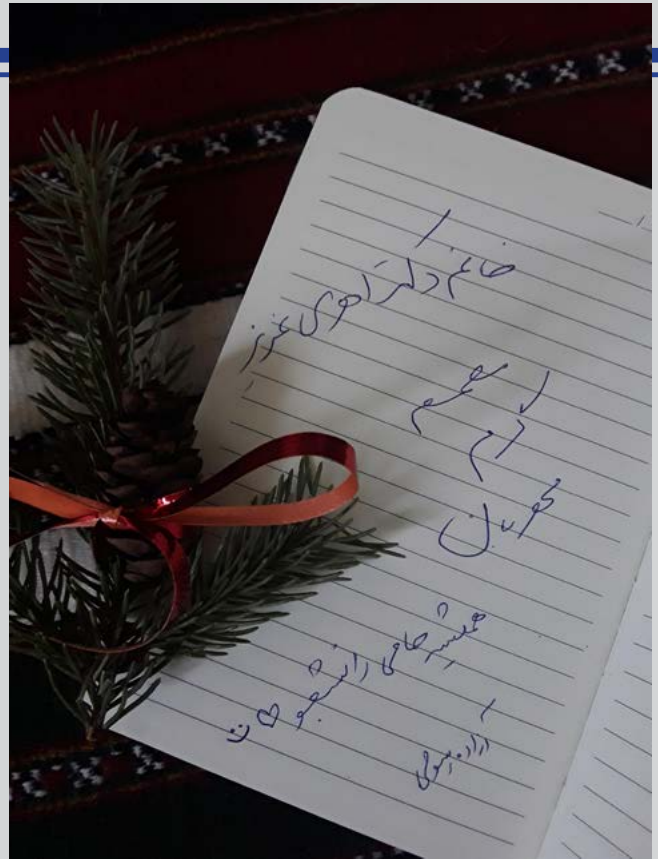 خانم دکتر اهری عزیز
صمیمی
گرم
مهربان
همیشه حامی دانشجو ♡ :)